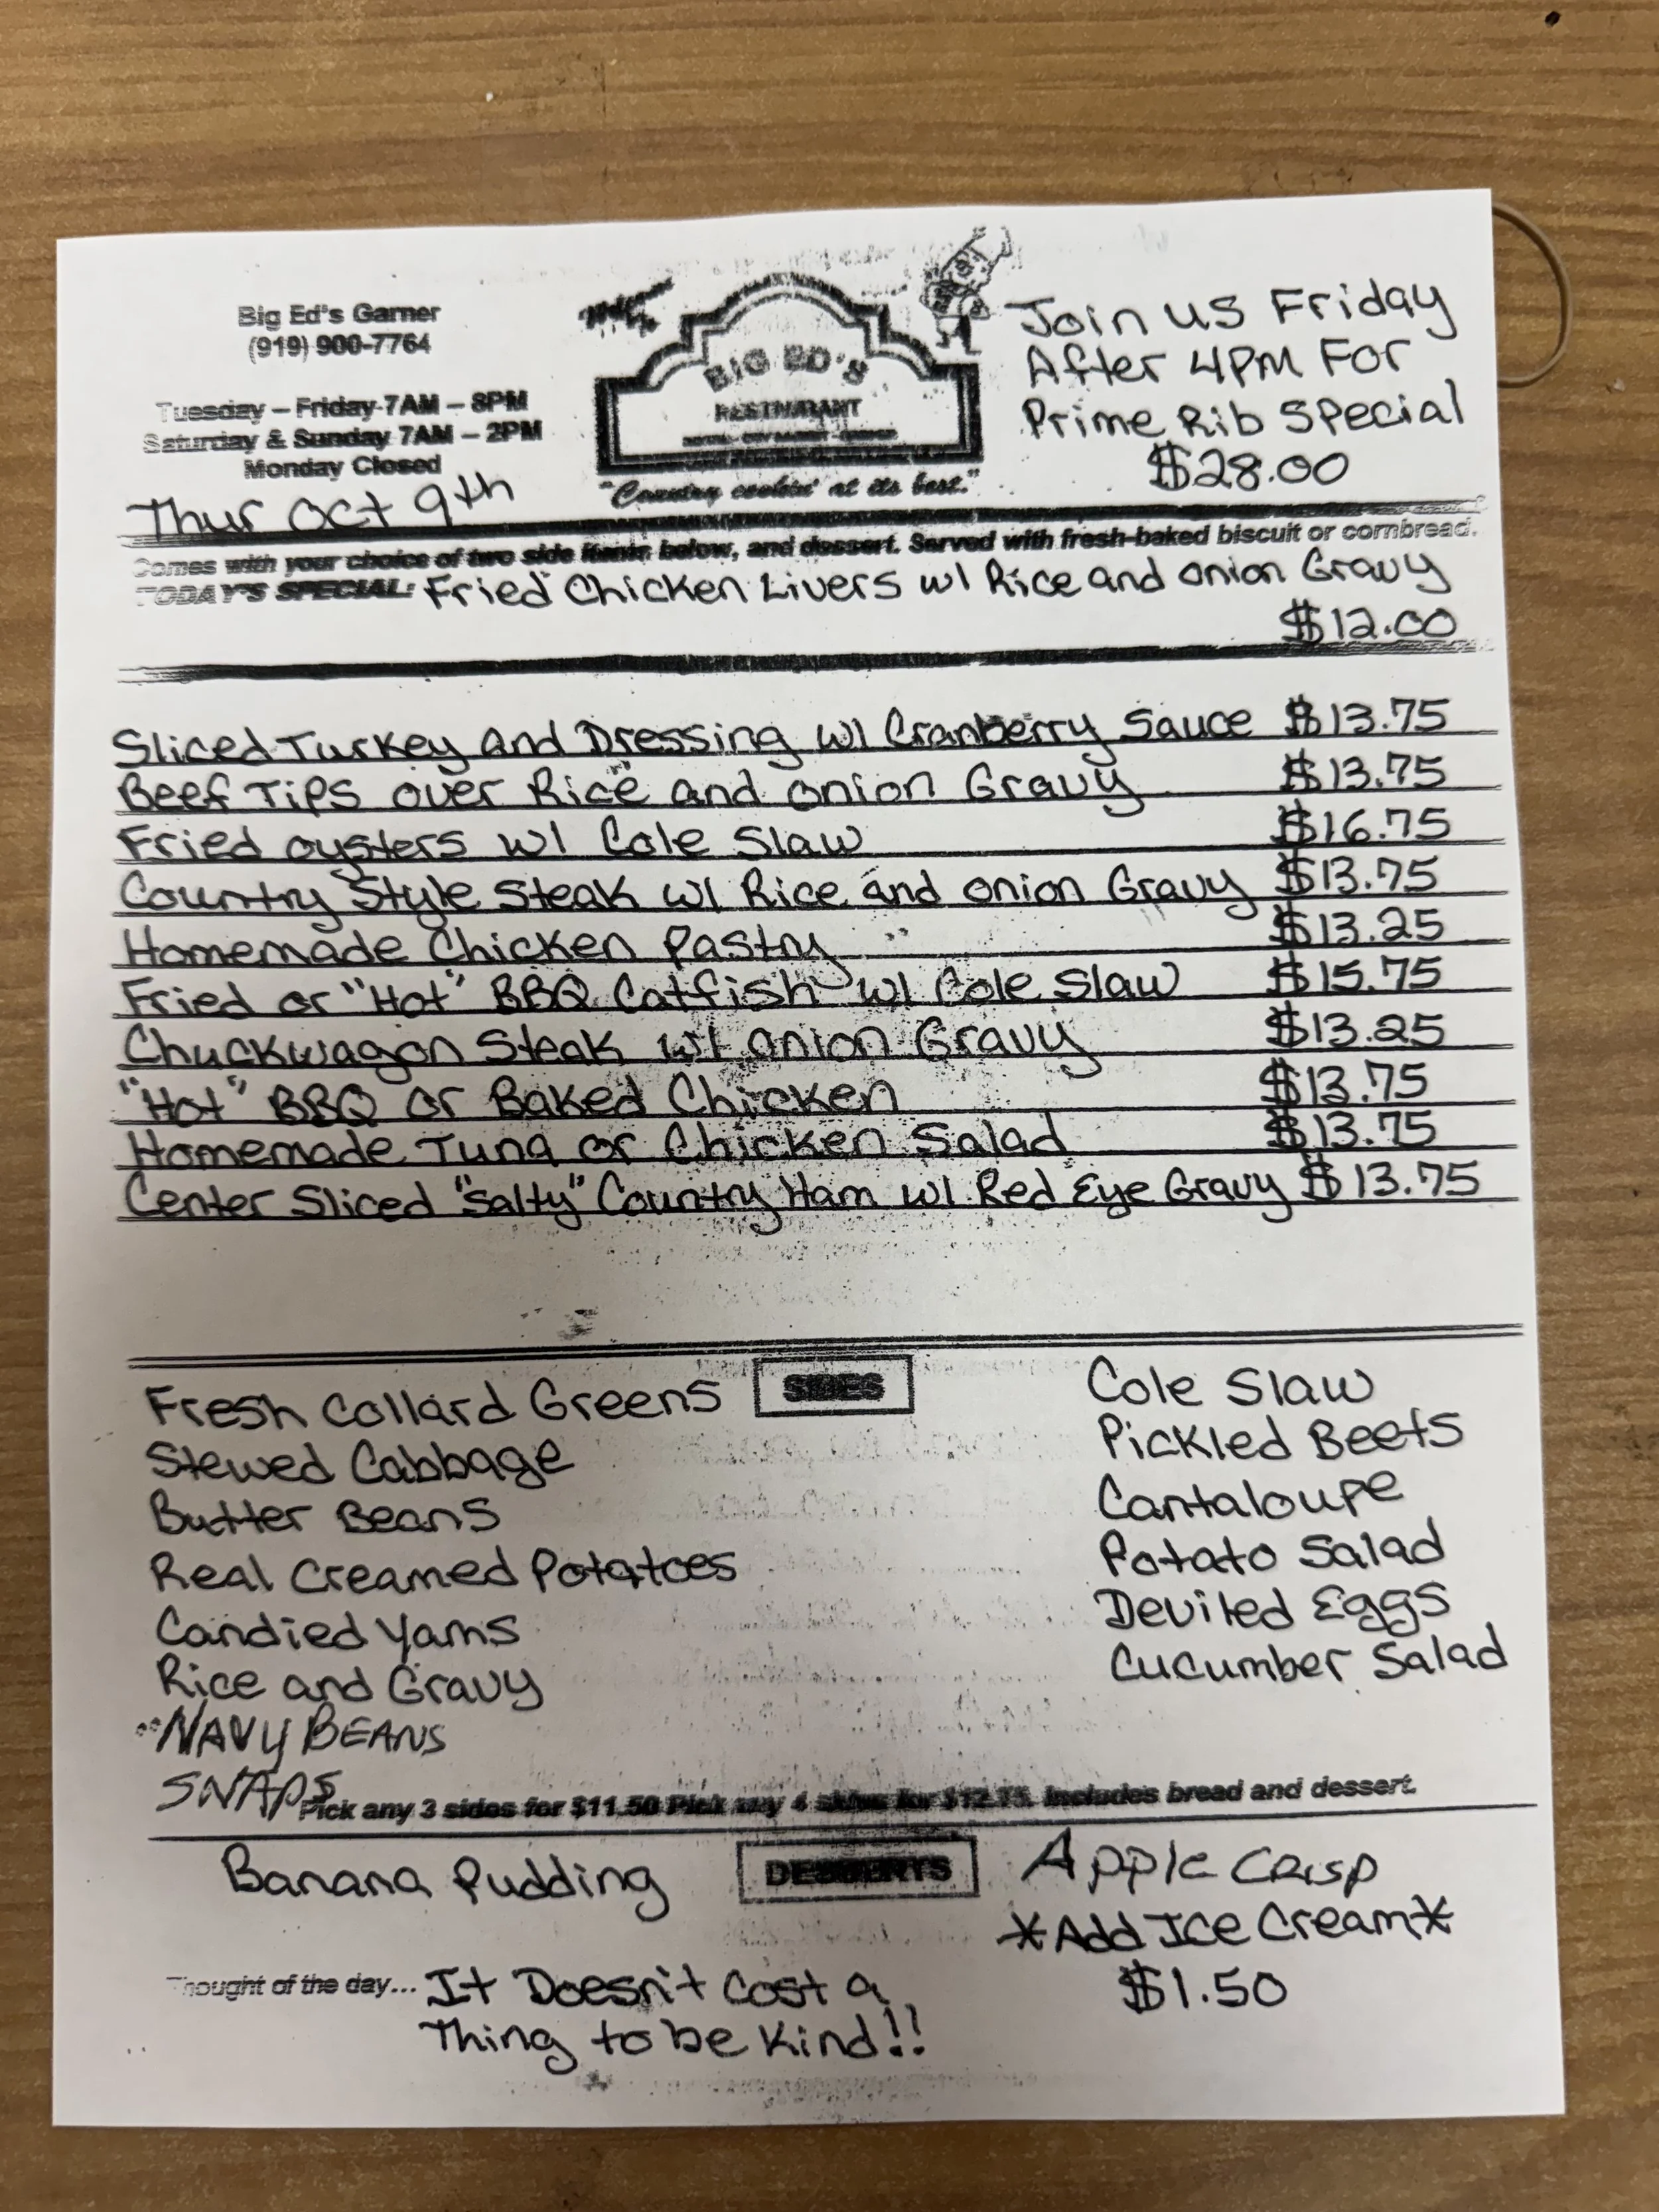 Big Ed's Garner
(919) 900-7764
Tuesday – Friday 7AM – 8PM
Saturday & Sunday 7AM – 2PM
Monday Closed
Thur Oct 9th
BIG ED'S
RESTAURANT
"Country cookin' at its best."
Join us Friday
After 4PM For
Prime Rib Special
$28.00
Comes with your choice of two side items below, and dessert. Served with fresh-baked biscuit or cornbread.
TODAY'S SPECIAL: Fried Chicken Livers w/ Rice and Onion Gravy
$12.00
Sliced Turkey and Dressing w/ Cranberry Sauce $13.75
Beef Tips over Rice and Onion Gravy $13.75
Fried Oysters w/ Cole Slaw $16.75
Country Style Steak w/ Rice and Onion Gravy $13.75
Homemade Chicken Pastry $13.25
Fried or "Hot" BBQ Catfish w/ Cole Slaw $15.75
Chuckwagon Steak w/ Onion Gravy $13.25
"Hot" BBQ or Baked Chicken $13.75
Homemade Tuna or Chicken Salad $13.75
Center Sliced "Salty" Country Ham w/ Red Eye Gravy $13.75
SIDES
Fresh Collard Greens
Stewed Cabbage
Butter Beans
Real Creamed Potatoes
Candied Yams
Rice and Gravy
NAVY BEANS
SNAPS
Cole Slaw
Pickled Beets
Cantaloupe
Potato Salad
Deviled Eggs
Cucumber Salad
Pick any 3 sides for $11.50 Pick any 4 sides for $12.75. Includes bread and dessert.
DESSERTS
Banana Pudding
Apple Crisp
*Add Ice Cream*
$1.50
Thought of the day... It Doesn't Cost a
Thing to be Kind!!